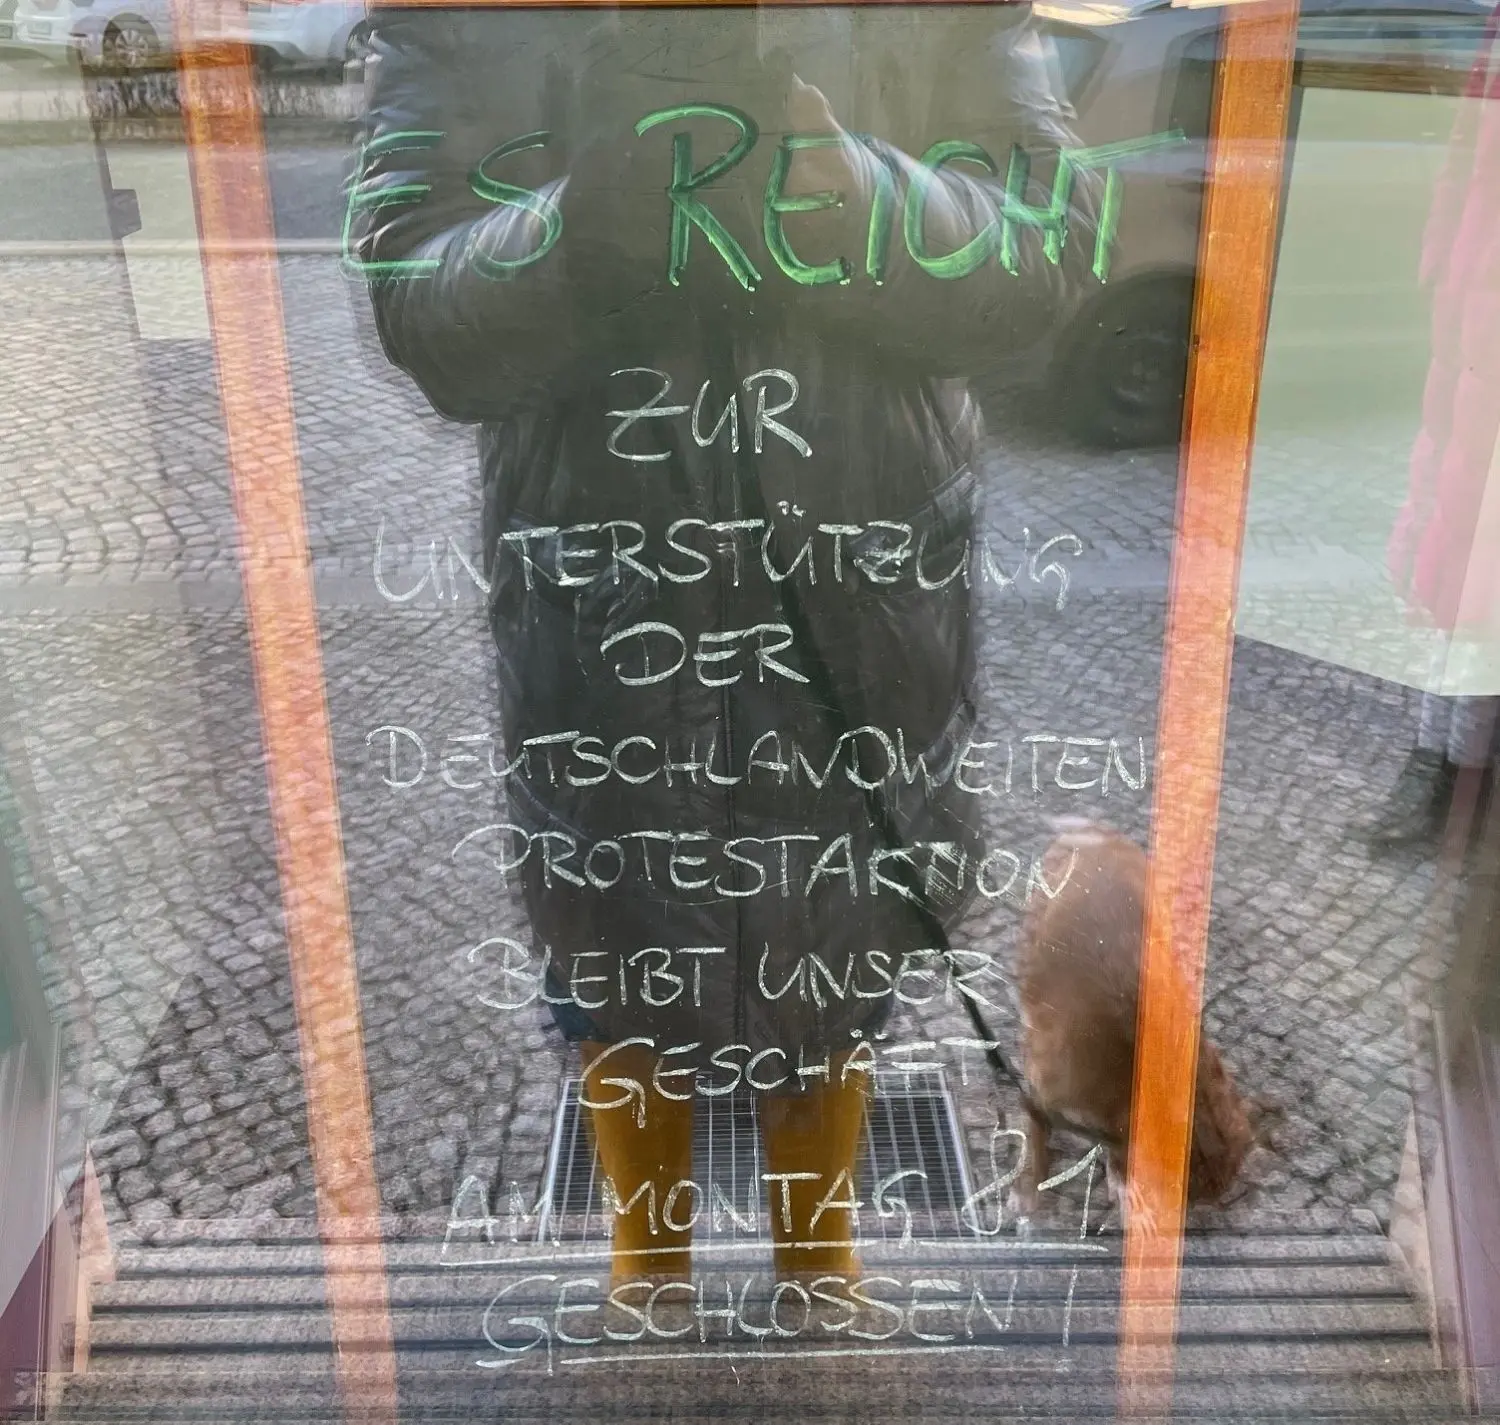 ES REICHT
ZUR
UNTERSTÜTZUNG
DER
DEUTSCHLANDWEITEN
PROTESTAKTION
BLEIBT UNSER
GESCHÄFT
AM MONTAG 8.1.
GESCHLOSSEN !